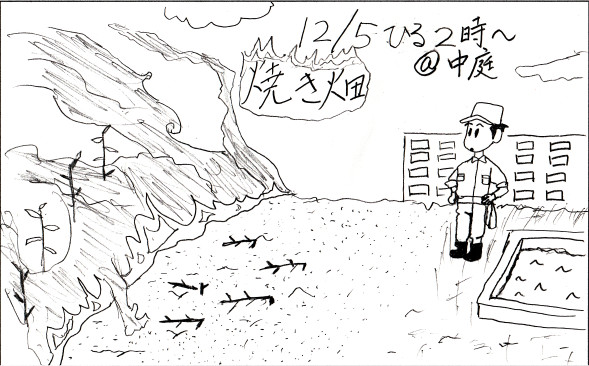 12/5 ひる2時～
@中庭
焼き畑